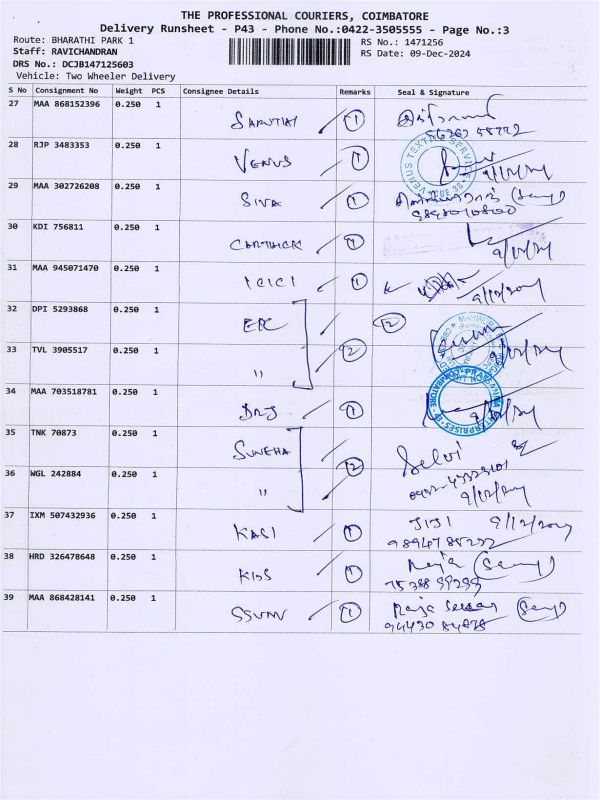 THE PROFESSIONAL COURIERS, COIMBATORE
Delivery Runsheet - P43 - Phone No.:0422-3505555 - Page No.:3
Route: BHARATHI PARK 1 RS No.: 1471256
Staff: RAVICHANDRAN RS Date: 09-Dec-2024
DRS No.: DCJB147125603
Vehicle: Two Wheeler Delivery
S No Consignment No Weight PCS Consignee Details Remarks Seal & Signature
27 MAA 868152396 0.250 1 1
28 RJP 3483353 0.250 1 VENUS 1 VENUS TEXTILE SERVICE 9/12/24
29 MAA 302726208 0.250 1 SIVA 1
30 KDI 756811 0.250 1 CARTHICK 1 9/12/24
31 MAA 945071470 0.250 1 ICICI 1 9/12/24
32 DPI 5293868 0.250 1 EPC 2
33 TVL 3905517 0.250 1 " 2 9/12/24
34 MAA 703518781 0.250 1 1 9/12/24
35 TNK 70873 0.250 1 SUNEHA 2 Selvi
36 WGL 242884 0.250 1 " 9/12/24
37 IXM 507432936 0.250 1 KASI 1 JIJI 9/12/24
38 HRD 326478648 0.250 1 KIDS 1 Raja
39 MAA 868428141 0.250 1 SSUMV 1 Raja